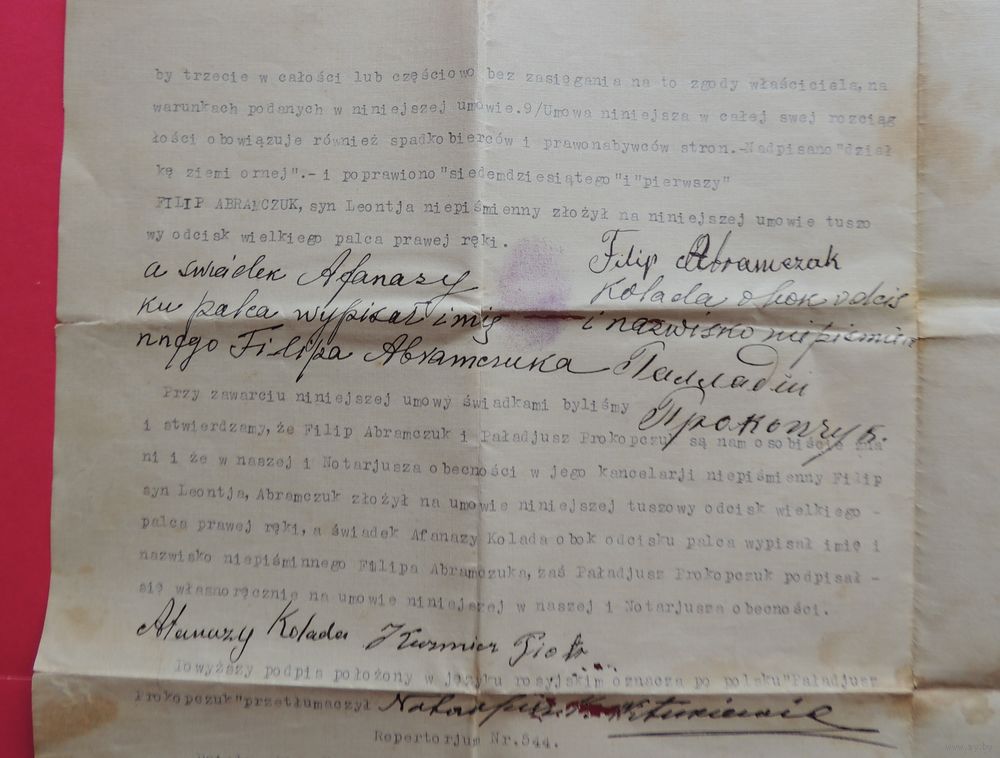 by trzecie w całości lub częściowo bez zasięgania na to zgody właściciela, na
warunkach podanych w niniejszej umowie.9/Umowa niniejsza w całej swej rozciąg
łości obowiązuje również spadkobierców i prawonabywców stron.-Nadpisano"dział
kę ziemi ornej".- i poprawiono"siedemdziesiątego"i"pierwszy"
FILIP ABRAMCZUK, syn Leontja niepiśmienny złożył na niniejszej umowie tuszo
wy odcisk wielkiego palca prawej ręki.
Filip Abramczak
a świadek Afanazy Kolada obok odcis
ku palca wypisał imię i nazwisko niepiśmie
nnego Filipa Abramczuka Палладій
Прокопчук.
Przy zawarciu niniejszej umowy świadkami byliśmy
i stwierdzamy, że Filip Abramczuk i Paładjusz Prokopczuk są nam osobiście zna
ni i że w naszej i Notarjusza obecności w jego kancelarji niepiśmienny Filip
syn Leontja, Abramczuk złożył na umowie niniejszej tuszowy odcisk wielkiego -
palca prawej ręki, a świadek Afanazy Kolada obok odcisku palca wypisał imię i
nazwisko niepiśminnego Filipa Abramczuka, zaś Paładjusz Prokopczuk podpisał -
się własnoręcznie na umowie niniejszej w naszej i Notarjusza obecności.
Afanazy Kolada Kuzmicz Piotr
Powyższy podpis położony w języku rosyjskim oznacza po polsku"Paładjusz
Prokopczuk"przetłumaczył Notarjusz
Repertorjum Nr.544.
www.ay.by